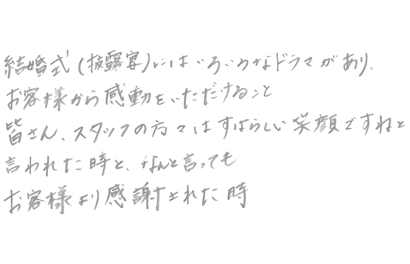 結婚式(披露宴)にはいろいろなドラマがあり、
お客様から感動をいただけること
皆さん、スタッフの方々はすばらしい笑顔ですねと
言われた時と、なんと言っても
お客様より感謝された時